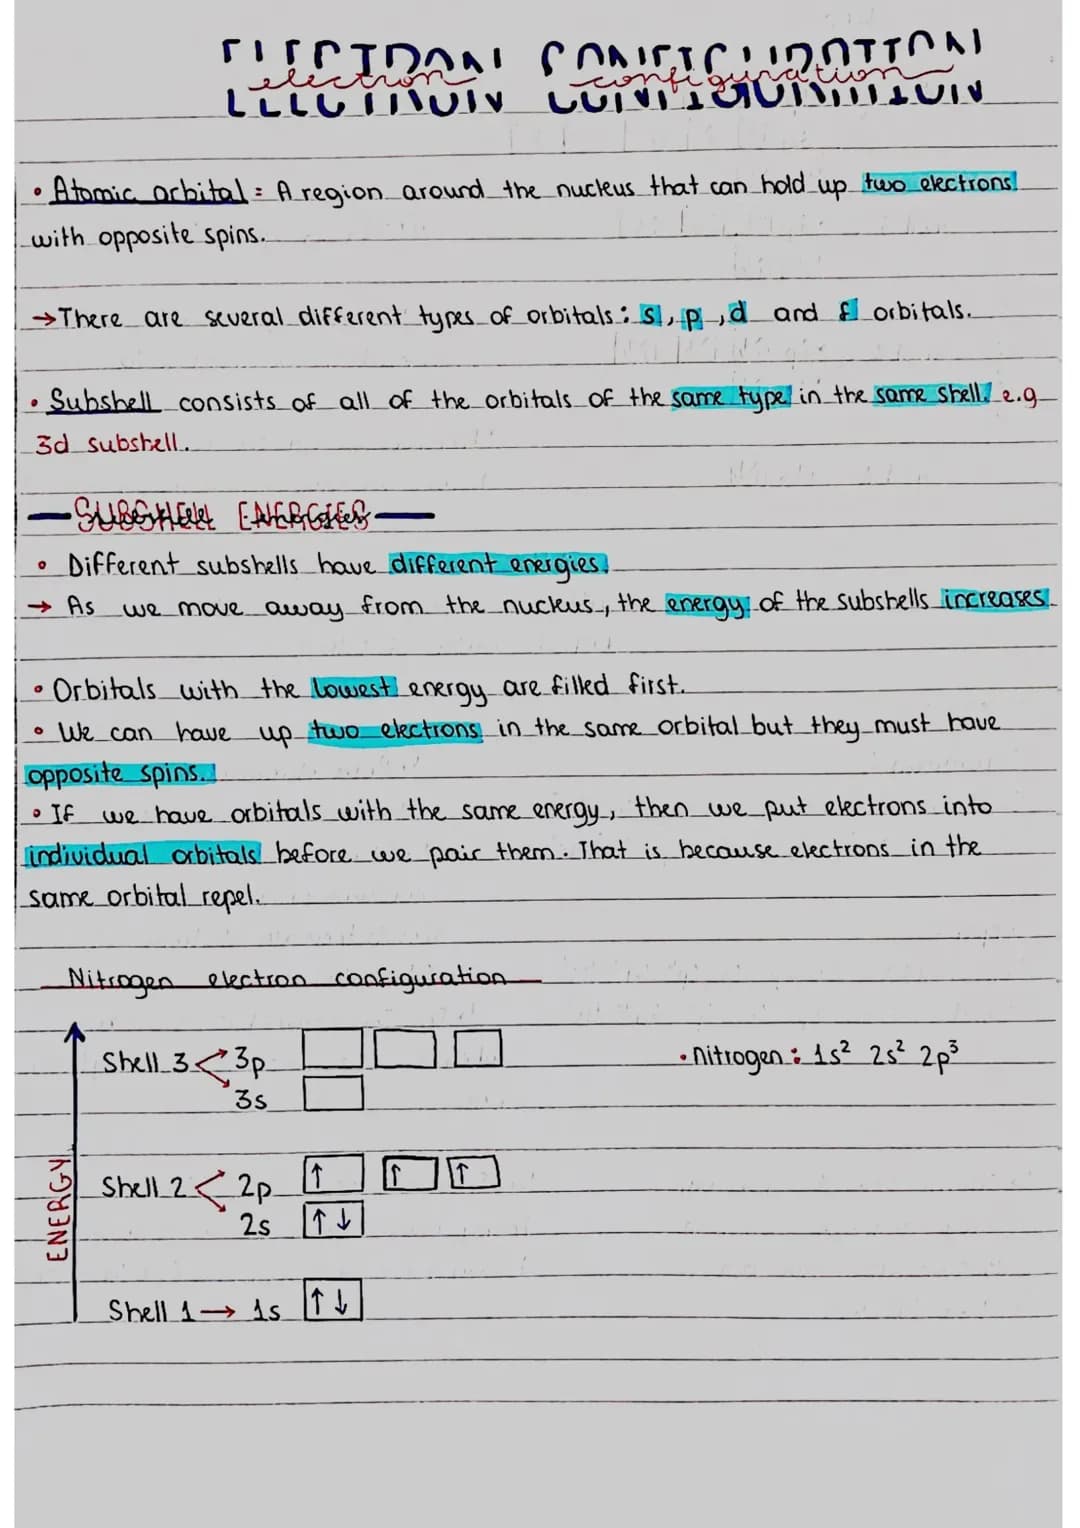 ELECTRON CONFIGURATION
electron configuration
• Atomic orbital: A region around the nucleus that can hold up two electrons
with opposite spins.
→ There are several different types of orbitals: s, p, d and f orbitals.
• Subshell consists of all of the orbitals of the same type in the same shell. e.g
3d subshell.
— SUBSHELL ENERGIES —
• Different subshells have different energies.
→ As we move away from the nucleus, the energy of the subshells increases
• Orbitals with the lowest energy are filled first.
• We can have up two electrons in the same orbital but they must have
opposite spins.
• If we have orbitals with the same energy, then we put electrons into
individual orbitals before we pair them. That is because electrons in the
same orbital repel.
Nitrogen electron configuration
Shell 3 3p
3s
• nitrogen: 1s² 2s² 2p³
ENERGY
Shell 2 2p ↑ ↑ ↑
2s ↑↓
Shell 1 → 1s ↑↓